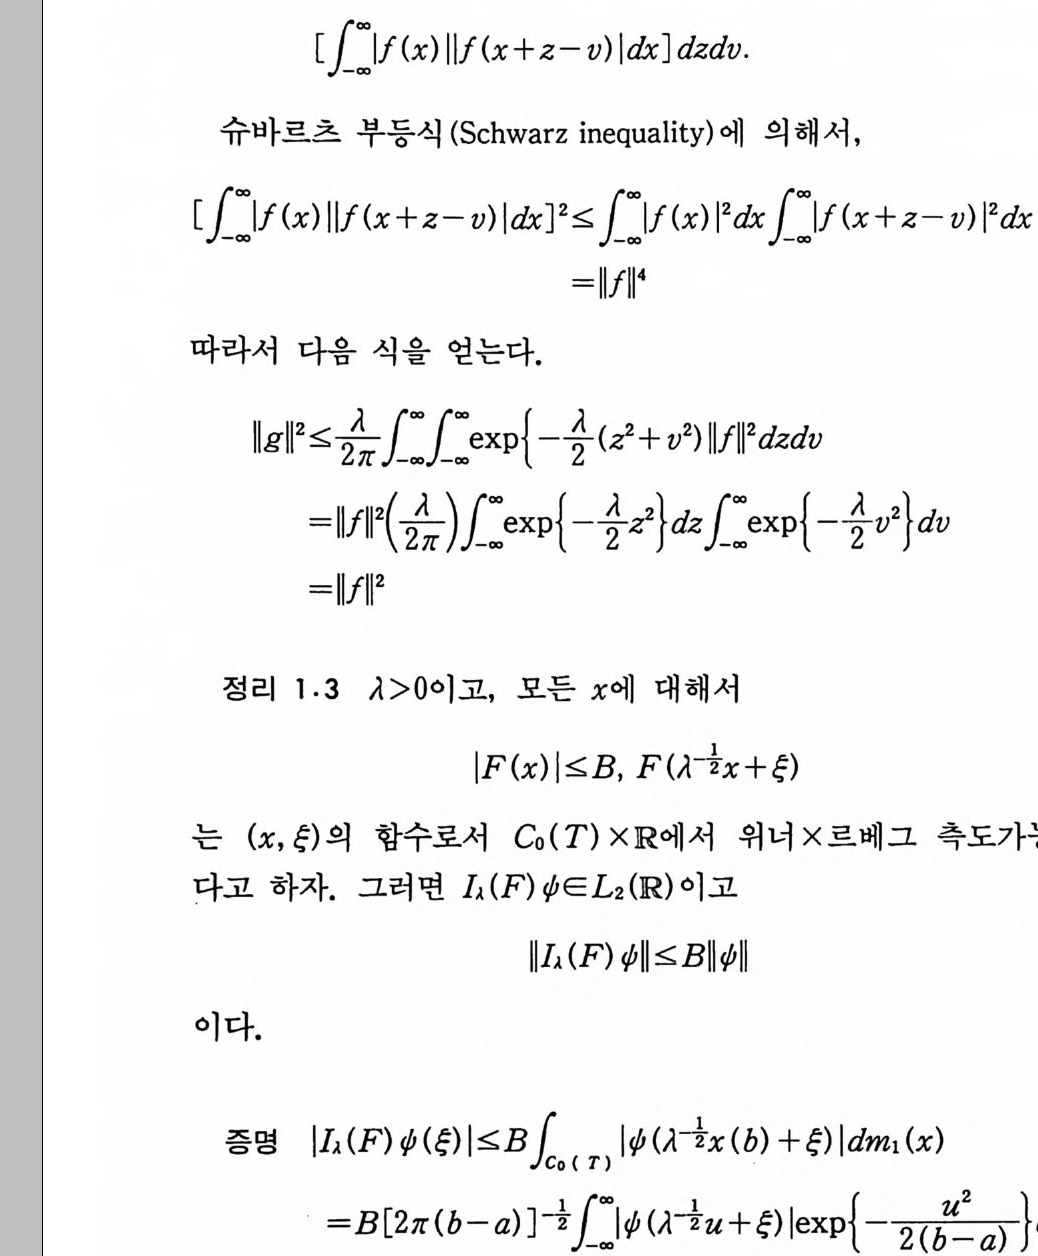 [∫_{-∞}^{∞}|f(x)||f(x+z-v)|dx]dzdv.
슈바르츠 부등식(Schwarz inequality)에 의해서,
[∫_{-∞}^{∞}|f(x)||f(x+z-v)|dx]²≤∫_{-∞}^{∞}|f(x)|²dx∫_{-∞}^{∞}|f(x+z-v)|²dx
=‖f‖⁴
따라서 다음 식을 얻는다.
‖g‖²≤\frac{λ}{2π}∫_{-∞}^{∞}∫_{-∞}^{∞}exp{-\frac{λ}{2}(z²+v²)‖f‖²dzdv
=‖f‖²(\frac{λ}{2π})∫_{-∞}^{∞}exp{-\frac{λ}{2}z²}dz∫_{-∞}^{∞}exp{-\frac{λ}{2}v²}dv
=‖f‖²
정리 1.3 λ>0이고, 모든 x에 대해서
|F(x)|≤B, F(λ^{-\frac{1}{2}}x+ξ)
는 (x, ξ)의 함수로서 C₀(T)×ℝ에서 위너×르베그 측도가
다고 하자. 그러면 I_λ(F)ψ∈L₂(ℝ)이고
‖I_λ(F)ψ‖≤B‖ψ‖
이다.
증명 |I_λ(F)ψ(ξ)|≤B∫_{C₀(T)}|ψ(λ^{-\frac{1}{2}}x(b)+ξ)|dm₁(x)
=B[2π(b-a)]^{-\frac{1}{2}}∫_{-∞}^{∞}|ψ(λ^{-\frac{1}{2}}u+ξ)|exp{-\frac{u²}{2(b-a)}}